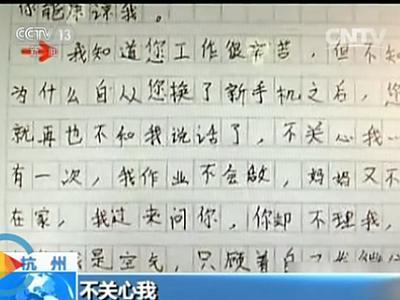 你能原谅我。
CCTV 13
新闻
CNTV
我知道您工作很辛苦，但不知
为什么自从您换了新手机之后，您
就再也不和我说话了，不关心我
有一次，我作业不会做，妈妈又不
在家，我过来问你，你却不理我，
是空气，只顾着自
杭州
不关心我